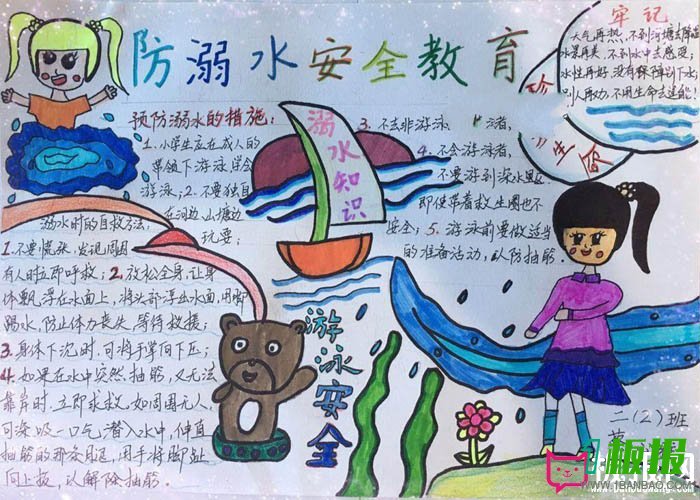 防溺水安全教育
牢记
天气再热,不到河塘去降温
水果再美,不到水中去感受;
水性再好,没有保障别下水;
别人再劝,不用生命去逞能!
珍
生命
预防溺水的措施:
1.小学生应在成人的
带领下游泳学会
游泳;2.不要独自
在河边、山塘边
玩耍;
溺水知识
3.不去非游泳
4.不会游泳者,
不要游到深水区
即使带着救生圈也不
安全;5.游泳前要做适当
的准备活动,以防抽筋。
溺水时的自救方法:
1.不要慌张,发现周围
有人时立即呼救;2.放松全身,让身
体飘浮在水面上,将头部浮出水面,用脚
踢水,防止体力丧失,等待救援;
3.身体下沉时,可将手掌向下压;
4.如果在水中突然抽筋,又无法
靠岸时,立即求救。如周围无人,
可深吸一口气潜入水中,伸直
抽筋的那条腿,用手将脚趾
向上拔,以解除抽筋。
游泳安全
二(2)班
板报
WWW.1BANBAO.COM